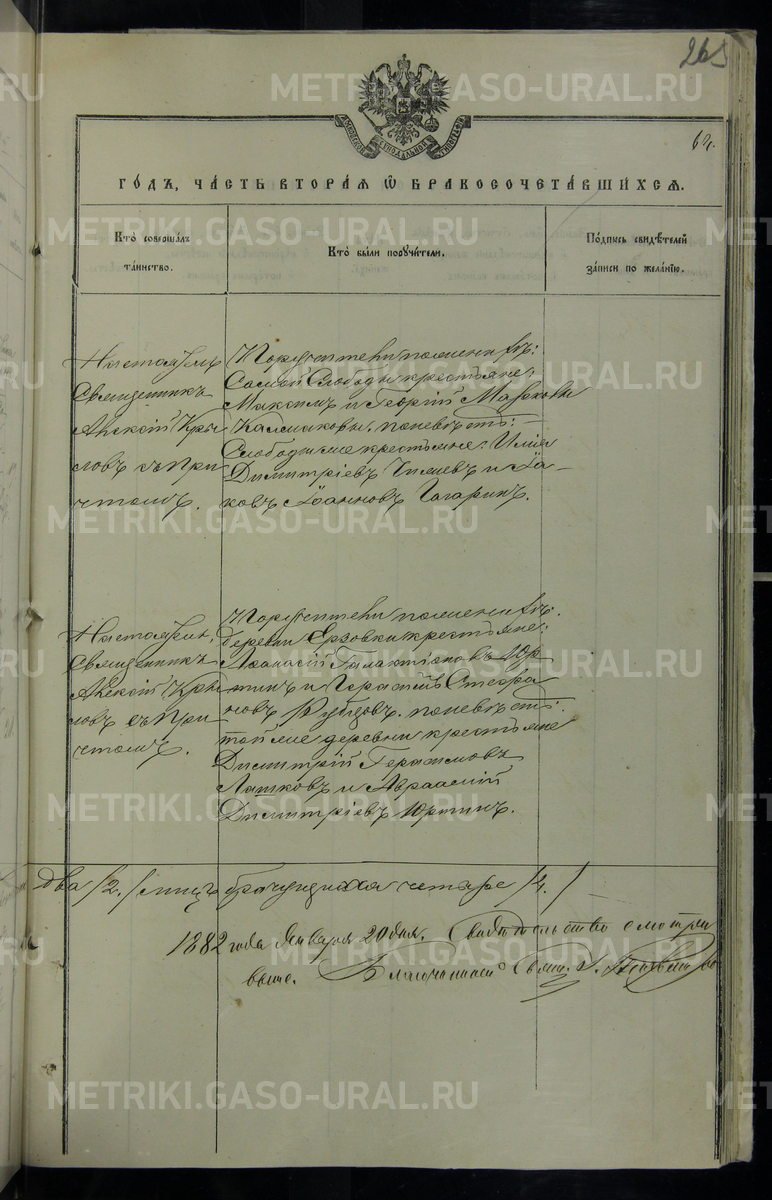 265
64.
МОСКОВСКОЙ СѴНОДАЛЬНОЙ ТИПОГРАФІИ
ГО́ДЪ, ЧА́СТЬ ВТОРА́Я Ѡ҆ БРАКОСОЧЕТА́ВШИХСЯ.
Кто̀ соверша́лъ
та́инство.
Кто̀ бы́ли поручи́тели.
По́дпись свидѣ́телей
за́писи по жела́нію.
Настоятель
Священникъ
Алексій Кры
ловъ съ при
чтомъ.
Поручители по жениху:
Самой Слободы крестьяне:
Максимъ и Георгій Марковы
Калмаковы. по невѣстѣ:
Слободы же крестьяне: Илія
Димитріевъ и Іа-
ковъ Іоанновъ Гагаринъ.
Настоятель,
Священникъ
Алексій Кры
ловъ съ при
чтомъ.
Поручители по жениху:
деревни Ерзовки крестьяне:
Аѳанасій Галактіоновъ Юр
тинъ и Герасимъ Стефа
новъ. по невѣстѣ:
той же деревни крестьяне
Димитрій Герасимовъ
Лапшковъ и Авраамій
Димитріевъ Юртинъ.
Два /2./ лицъ брачущихся четыре /4./
1882 года Января 20 дня. Свидѣтельство смотри
выше. Благочинный Свящ.
METRIKI.GASO-URAL.RU